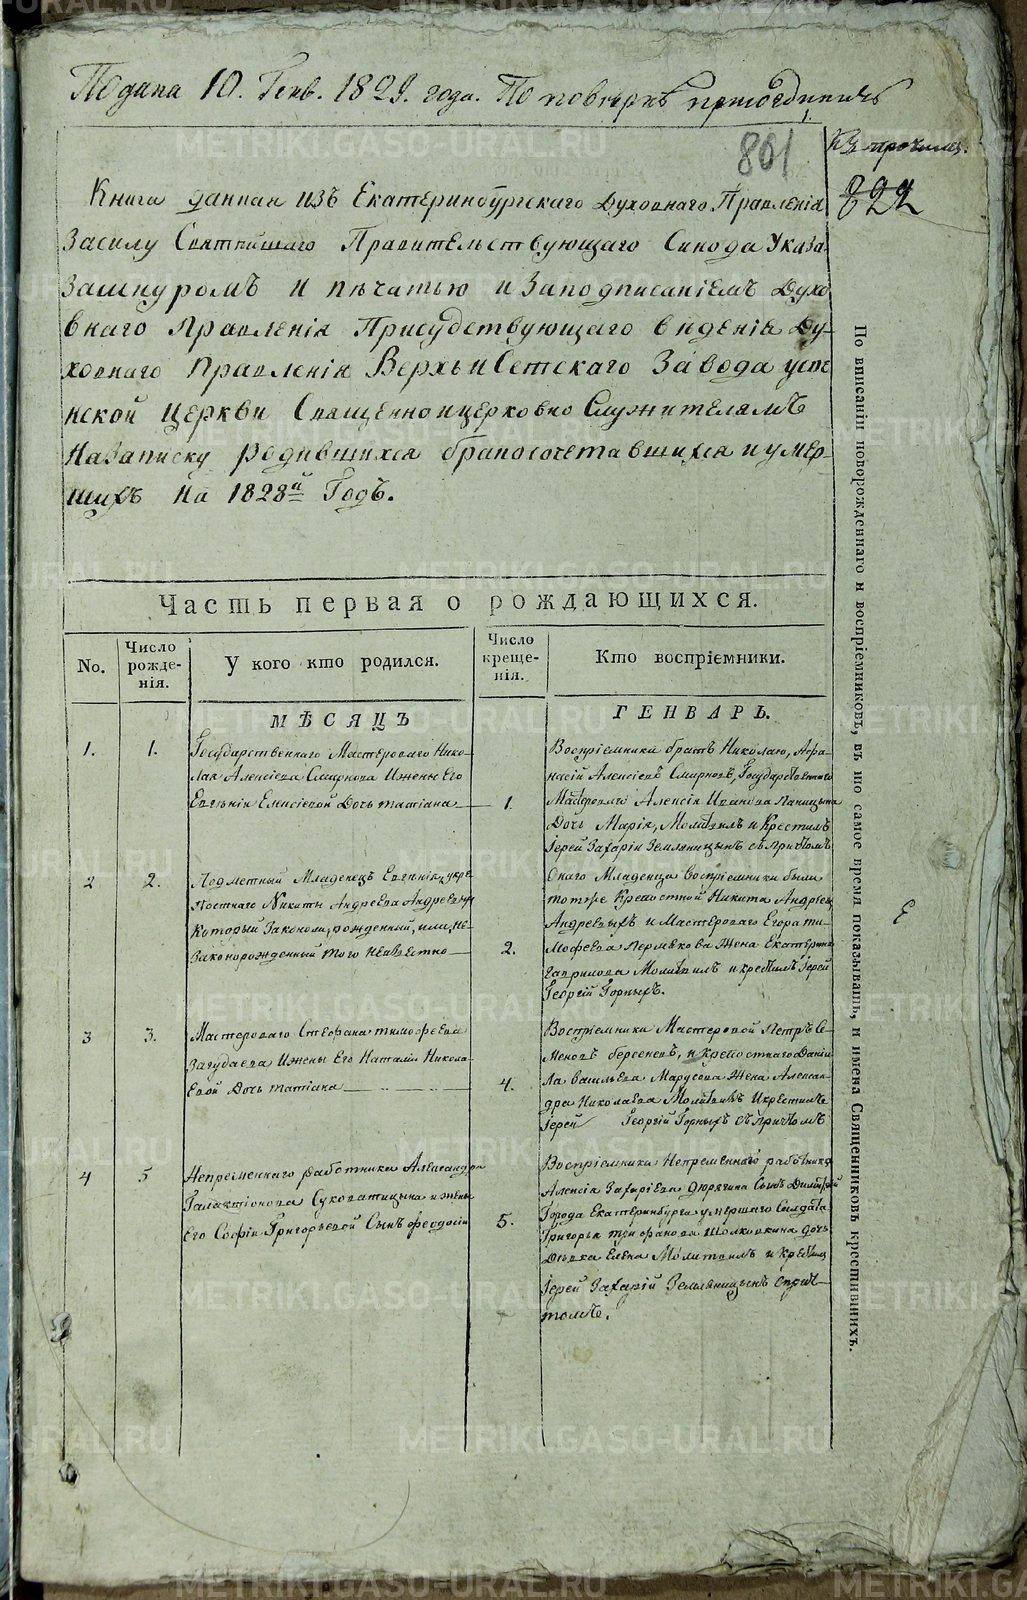 Подана 10. Генв. 1829. года. По поверкѣ
къ прочимъ.
801
822
Книга данная изъ Екатеринбургскаго Духовнаго Правленія
Засилу Святѣйшаго Правительствующаго Синода Указа
Зашнуромъ и пѣчатью и Заподписаніемъ Духо
внаго Правленія Присудствующаго вѣденія Ду-
ховнаго Правленія Верхъ Исетскаго Завода успе
нской церкви Священноицерковно Служителямъ
На записку родившихся бракосочетавшихся и умер-
шихъ на 1828й Годъ.
Часть первая о рождающихся.
No.
Число рожде-нія.
У кого кто родился.
Число креще-нія.
Кто воспріемники.
МѢСЯЦЪ
ГЕНВАРЬ.
1.
1.
Государственнаго Мастероваго Нико-
лая Алексіева Смирнова Ижены Его
Евгеніи Елисіевой Дочь татіана
1.
Воспріемники братъ Николаю, Афа-
насій Алексіевъ Смирновъ, Государственнаго
Мастероваго Алексія Иванова
Дочь Марія, Молитвилъ и Крестилъ
Іерей Захарій Земляницынъ съ причтомъ
2
2.
Подметный Младенецъ Евгеній, у кре
постнаго Никиты Андреева
который Законом, рожденный, или, не-
Законорожденный того неизвестно
2.
Онаго Младенца Воспріемники были
тотже Крепостной Никита Андреевъ
и Мастероваго Егора ти-
мофеева Пермякова Жена Екатерина
Гаврилова Молитвилъ и крестилъ Іерей
Георгій Горныхъ.
3
3.
Мастероваго Стефана тимофеева
Загудаева Ижены Его Наталіи Никола-
евой Дочь татіана
4.
Воспріемники Мастеровой Петръ Се-
меновъ берсеневъ, и крепостнаго Даніи
ла васильева Марусова Жена Алексан-
дра Николаева Молитвилъ Икрестилъ
Іерей Георгій Горныхъ съ причтомъ
4
5
Непременнаго работника Александра
Галактіонова Суковатицына и жены
Его Софіи Григорьевой Сынъ феодосій
5.
Воспріемники Непременнаго работника
Алексія Захаріева Дюрягина Сынъ Димитрій
Города Екатеринбурга умершаго Солдата
Григорья трифанова Шолковкина дочь
Девка Елена Молитвилъ и Крестилъ
Іерей Захарій Земляницынъ спричт
томъ.
По вписаніи новорожденнаго и воспріемниковъ, въ то самое время показывать, и имена Священниковъ крестившихъ.
METRIKI.GASO-URAL.RU